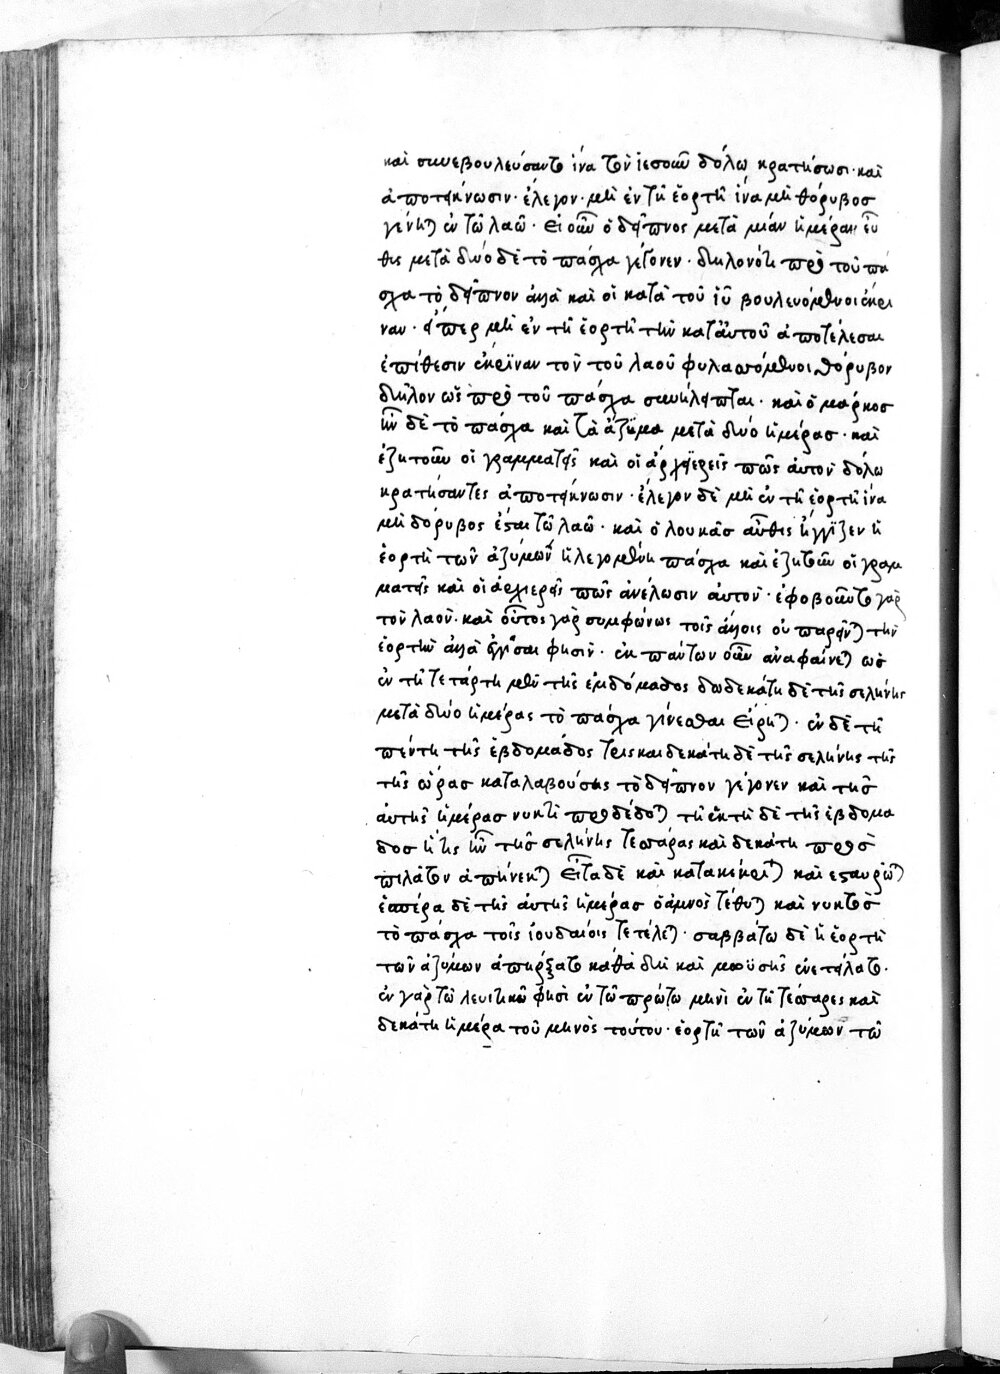 καὶ συνεβουλεύσαντο ἵνα τὸν ἰησοῦν δόλω κρατήσωσι· καὶ
ἀποκτείνωσιν· ἔλεγον· μὴ ἐν τῆ ἑορτῆ ἵνα μὴ θόρυβος
γένηται ἐν τῶ λαῶ· εἰ οὖν ὁ δεῖπνος μετὰ μίαν ἡμέραν εὐ
θις μετὰ δύο δὲ τὸ πάσχα γέγονεν· δηλονότι πρὸ τοῦ πά
σχα τὸ δεῖπνον ἀλλὰ καὶ οἱ κατὰ τοῦ ἰῦ βουλευόμενοι ἔκρι
ναν· εἴπερ μὴ ἐν τῆ ἑορτῆ τὴν κατ' αὐτοῦ ἀποτέλεσαι
ἐπίθεσιν ἐκρίναν τὸν τοῦ λαοῦ φυλαττόμενοι θόρυβον
δῆλον ὡς πρὸ τοῦ πάσχα συνείληπται· καὶ ὁ μάρκος
ἦν δὲ τὸ πάσχα καὶ τὰ ἄζυμα μετὰ δύο ἡμέρας· καὶ
ἐζητοῦν οἱ γραμματεῖς καὶ οἱ ἀρχιερεῖς πῶς αὐτὸν δόλω
κρατήσαντες ἀποκτείνωσιν· ἔλεγον δὲ μὴ ἐν τῆ ἑορτῆ ἵνα
μὴ θόρυβος ἔσται τῶ λαῶ· καὶ ὁ λουκᾶς αὖθις ἤγγιζεν ἡ
ἑορτὴ τῶν ἀζύμων ἡ λεγομένη πάσχα καὶ ἐζητοῦν οἱ γραμ
ματεῖς καὶ οἱ ἀρχιερεῖς πῶς ἀνέλωσιν αὐτόν· ἐφοβοῦντο γὰρ
τὸν λαόν· καὶ οὗτος γὰρ συμφώνως τοῖς ἄλλοις οὐ παρεῖναι τὴν
ἑορτὴν ἀλλὰ ἐγγίσαι φησίν· ἐκ πάντων οὖν ἀναφαίνεται ὡς
ἐν τῆ τετάρτη μὲν τῆς ἑβδομάδος δωδεκάτη δὲ τῆς σελήνης
μετὰ δύο ἡμέρας τὸ πάσχα γίνεσθαι εἴρηται· ἐν δὲ τῆ
πέντη τῆς ἑβδομάδος τρισκαιδεκάτη δὲ τῆς σελήνης τῆς
τῆς ὥρας καταλαβούσης τὸ δεῖπνον γέγονεν καὶ τῆς
αὐτῆς ἡμέρας νυκτὶ προδέδοται τῆ ἕκτη δὲ τῆς ἑβδομα
δος ἥτις ἦν τῆς σελήνης τεσσάρας καὶ δεκάτη πρὸς
πιλάτον ἀπήνεκται εἶτα δὲ καὶ κατακέκριται καὶ ἐσταυρῶται
ἑσπέρα δὲ τῆς αὐτῆς ἡμέρας ὁ ἀμνὸς τέθυται καὶ νυκτὸς
τὸ πάσχα τοῖς ἰουδαίοις τετέλεται· σαββάτω δὲ ἡ ἑορτὴ
τῶν ἀζύμων ἀπήρξατο καθὰ δὴ καὶ μωϋσῆς ἐνετείλατο·
ἐν γὰρ τῶ λευιτικῶ φησὶ ἐν τῶ πρώτω μηνὶ ἐν τῆ τέσσαρες καὶ
δεκάτη ἡμέρα τοῦ μηνὸς τούτου· ἑορτὴ τῶν ἀζύμων τῶ